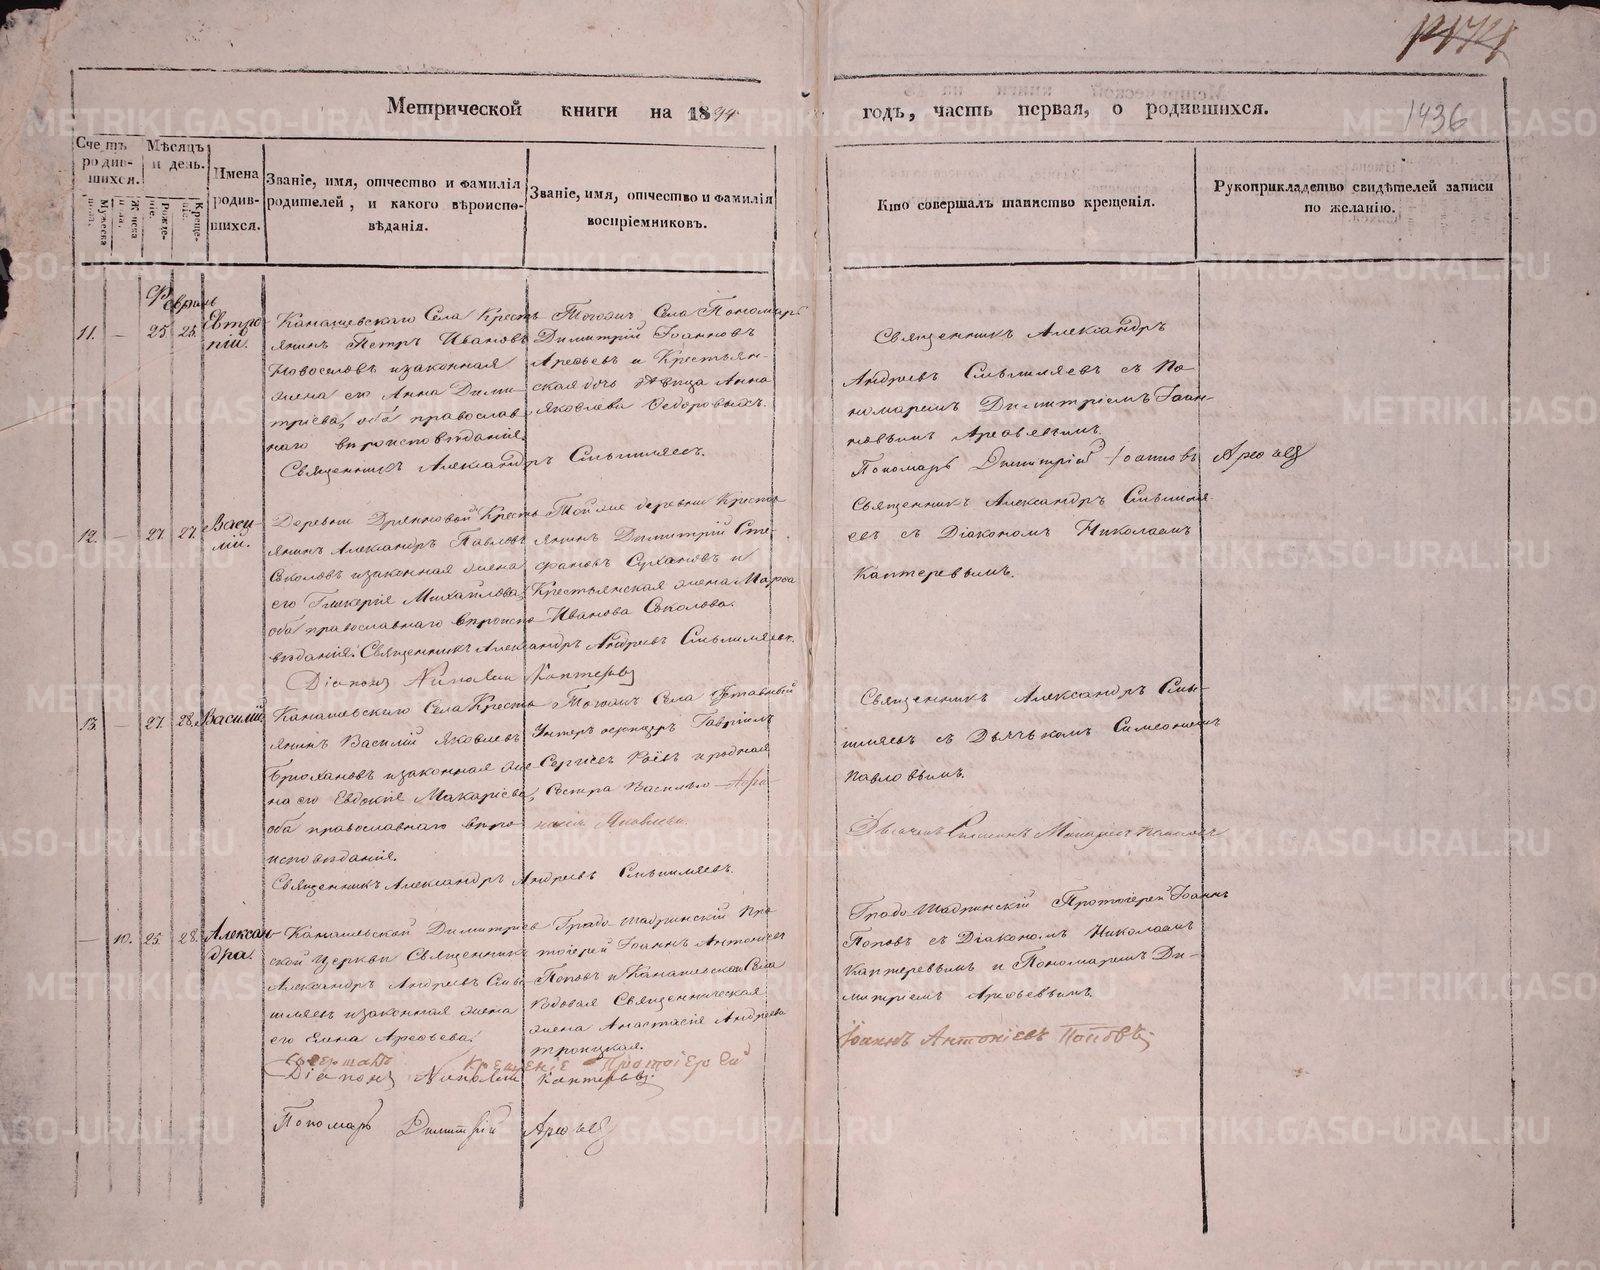 1436
Метрической книги на 18
годъ, часть первая, о родившихся.
Счетъ родив-шихся.
Мужеска пола.
Женска пола.
Мѣсяцъ и день.
Рожде-нія.
Креще-нія.
Имена родив-шихся.
Званіе, имя, отчество и фамилія родителей, и какого вѣроиспо-вѣданія.
Званіе, имя, отчество и фамилія воспріемниковъ.
Кто совершалъ таинство крещенія.
Рукоприкладство свидѣтелей записи по желанію.
Февраль
11. — 25 25. Евтро-
пій.
Канашевскаго Села Кресть-
янинъ Петръ Ивановъ
Новоселовъ и законная
жена его Анна Дими-
тріева, оба православ-
наго вѣроисповѣданія.
Священникъ Александръ
Тогожъ Села Пономарь
Димитрій Іоанновъ
Арефьевъ и Крестьян-
ская дочь дѣвица Анна
Яковлева Федоровыхъ.
Священникъ Александръ
Андреевъ съ По-
номаремъ Димитріемъ Іоан-
новымъ Арефьевымъ.
Пономарь Димитрій Іоанновъ Арефьевъ
12. — 27. 27. Васи-
лій.
Деревни Кресть-
янинъ Александръ Павловъ
Соколовъ и законная жена
его Гликерія Михайлова,
оба православнаго вѣроиспо-
вѣданія. Священникъ Александръ Андреевъ
Діаконъ Николай Каптеревъ
Той же деревни Кресть-
янинъ Димитрій Сте-
фановъ Сухановъ и
Крестьянская жена Марфа
Иванова Соколова.
Священникъ Александръ
съ Діакономъ Николаемъ
Каптеревымъ.
13. — 27. 28. Василій
Канашевскаго Села Кресть-
янинъ Василій Яковлевъ
Брюхановъ и законная же-
на его Евдокія Макаріева,
оба православнаго вѣро-
исповѣданія.
Священникъ Александръ Андреевъ
Тогожъ Села
Унтеръ офицеръ Гавріилъ
и родная
Сестра Василью
Яковлева.
Священникъ Александръ
съ Дьячкомъ Симеономъ
Павловымъ.
— 10. 25. 28. Алексан-
дра.
Канашевской Димитріев-
ской церкви Священникъ
Александръ Андреевъ
и законная жена
его Елена Арефьева.
Градо Шадринскій Про-
тоіерей Іоаннъ Антоніевъ
Поповъ и Канашевскаго Села
вдовая Священническая
жена Анастасія Андреева
Троицкая.
крещеніе Протоіерей
Діаконъ Николай Каптеревъ.
Пономарь Димитрій Арефьевъ
Градо Шадринскій Протоіерей Іоаннъ
Поповъ съ Діакономъ Николаемъ
Каптеревымъ и Пономаремъ Ди-
митріемъ Арефьевымъ.
Іоаннъ Антоніевъ Поповъ
METRIKI.GASO-URAL.RU